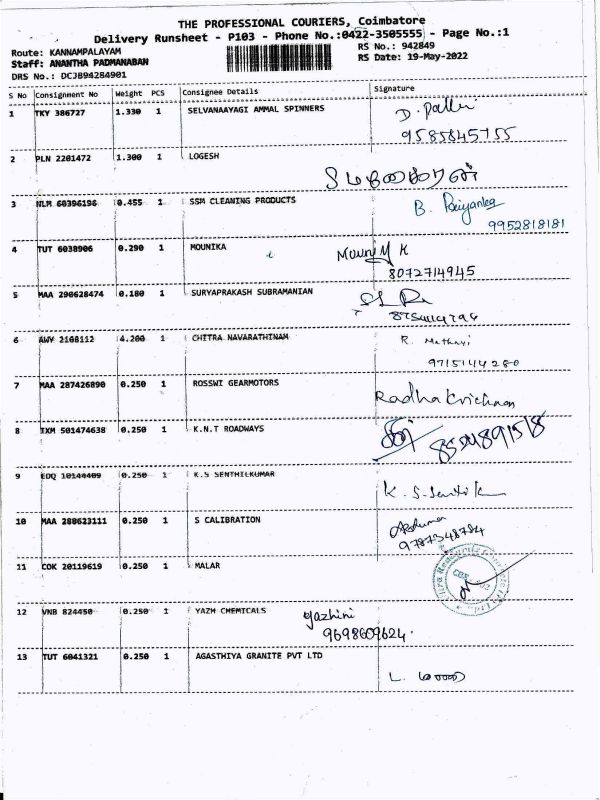 THE PROFESSIONAL COURIERS, Coimbatore
Delivery Runsheet - P103 - Phone No.:0422-3505555 - Page No.:1
Route: KANNAMPALAYAM RS No.: 942849
Staff: ANANTHA PADMANABAN RS Date: 19-May-2022
DRS No.: DCJB94284901
S No Consignment No Weight PCS Consignee Details Signature
1 TKY 386727 1.330 1 SELVANAAYAGI AMMAL SPINNERS
9585845755
2 PLN 2201472 1.300 1 LOGESH
3 NLM 60396196 0.455 1 SSM CLEANING PRODUCTS B. Priyanka
9952818181
4 TUT 6038906 0.290 1 MOUNIKA
8072714945
5 MAA 290628474 0.180 1 SURYAPRAKASH SUBRAMANIAN
6 AWV 2108112 4.200 1 CHITRA NAVARATHINAM R. Mathavi
9715144280
7 MAA 287426890 0.250 1 ROSSWI GEARMOTORS Radha Krishnan
8 IXM 501474638 0.250 1 K.N.T ROADWAYS
9 EDQ 10144409 0.250 1 K.S SENTHILKUMAR
K. S. Senthil k
10 MAA 288623111 0.250 1 S CALIBRATION
9787348784
11 COK 20119619 0.250 1 MALAR
12 VNB 824450 0.250 1 YAZH CHEMICALS Yazhini
9698609624
13 TUT 6041321 0.250 1 AGASTHIYA GRANITE PVT LTD